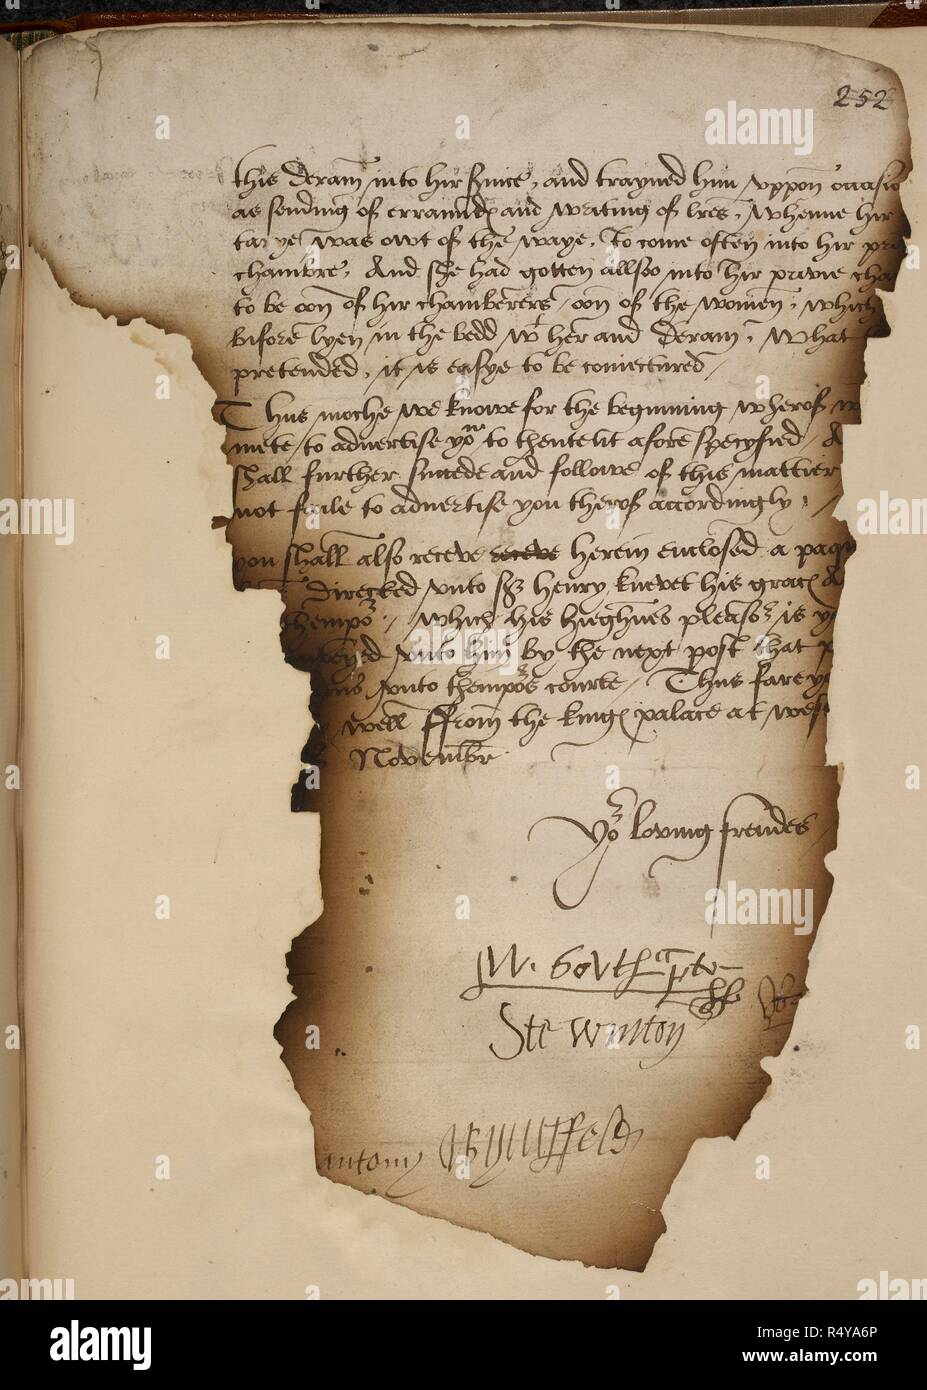 252
this Deram into hir service, and trayned him uppon occasio
as sending of errannds and writing of lres, whenne hir
was owt of the waye, to come often into hir pre
chambre, And she had gotten allsoo into hir privie cha
to be oon of hir chamberers, oon of the women, which
bifore lyen in the bedd wt her and Deram, What
pretended, it is easye to be coniectured
Thus moche we knowe for the beginning wherof w
mete to advertise you to thentent afore specyfied A
shall further succede and folowe of this mattier
not faile to advertise you therof accordingly
you shall also receve receve herein enclosed a paqu
Directed unto Sr Henry knevet his graces A
thempor, which his hieghnes pleasr is y
unto him by the next post that p
unto thempors courte, Thus fare y
well ffrom the kings palace at west
Novembr
Yor loving freindes
W. Sovthapto
Ste Winton
antony
a alamy
alamy
R4YA6P
Image ID: R4YA6P
www.alamy.com